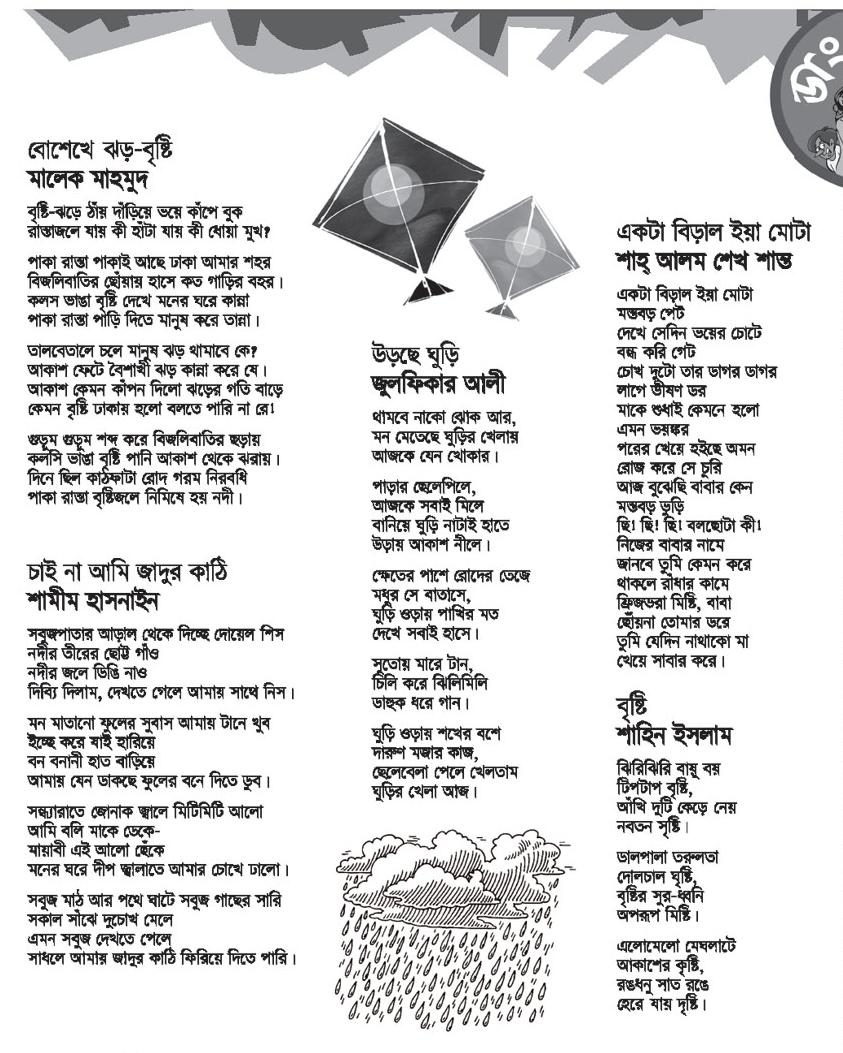 বোশেখে ঝড়-বৃষ্টি
মালেক মাহমুদ
বৃষ্টি-ঝড়ে ঠাঁয় দাঁড়িয়ে ভয়ে কাঁপে বুক
রাস্তাজলে যায় কী হাঁটা যায় কী ধোয়া মুখ?
পাকা রাস্তা পাকাই আছে ঢাকা আমার শহর
বিজলিবাতির ছোঁয়ায় হাসে কত গাড়ির বহর।
কলস ভাঙা বৃষ্টি দেখে মনের ঘরে কান্না
পাকা রাস্তা পাড়ি দিতে মানুষ করে তান্না।
তালবেতালে চলে মানুষ ঝড় থামাবে কে?
আকাশ ফেটে বৈশাখী ঝড় কান্না করে যে।
আকাশ কেমন কাঁপন দিলো ঝড়ের গতি বাড়ে
কেমন বৃষ্টি ঢাকায় হলো বলতে পারি না রে!
গুড়ুম গুড়ুম শব্দ করে বিজলিবাতির ছড়ায়
কলসি ভাঙা বৃষ্টি পানি আকাশ থেকে ঝরায়।
দিনে ছিল কাঠফাটা রোদ গরম নিরবধি
পাকা রাস্তা বৃষ্টিজলে নিমিষে হয় নদী।
চাই না আমি জাদুর কাঠি
শামীম হাসনাইন
সবুজপাতার আড়াল থেকে দিচ্ছে দোয়েল শিস
নদীর তীরের ছোট্ট গাঁও
নদীর জলে ডিঙি নাও
দিব্যি দিলাম, দেখতে গেলে আমায় সাথে নিস।
মন মাতানো ফুলের সুবাস আমায় টানে খুব
ইচ্ছে করে যাই হারিয়ে
বন বনানী হাত বাড়িয়ে
আমায় যেন ডাকছে ফুলের বনে দিতে ডুব।
সন্ধ্যারাতে জোনাক জ্বালে মিটিমিটি আলো
আমি বলি মাকে ডেকে-
মায়াবী এই আলো ছেঁকে
মনের ঘরে দীপ জ্বালাতে আমার চোখে ঢালো।
সবুজ মাঠ আর পথে ঘাটে সবুজ গাছের সারি
সকাল সাঁঝে দুচোখ মেলে
এমন সবুজ দেখতে পেলে
সাধলে আমায় জাদুর কাঠি ফিরিয়ে দিতে পারি।
উড়ছে ঘুড়ি
জুলফিকার আলী
থামবে নাকো ঝোক আর,
মন মেতেছে ঘুড়ির খেলায়
আজকে যেন খোকার।
পাড়ার ছেলেপিলে,
আজকে সবাই মিলে
বানিয়ে ঘুড়ি নাটাই হাতে
উড়ায় আকাশ নীলে।
ক্ষেতের পাশে রোদের তেজে
মধুর সে বাতাসে,
ঘুড়ি ওড়ায় পাখির মত
দেখে সবাই হাসে।
সুতোয় মারে টান,
চিলি করে ঝিলিমিলি
ডাহুক ধরে গান।
ঘুড়ি ওড়ায় শখের বশে
দারুণ মজার কাজ,
ছেলেবেলা পেলে খেলতাম
ঘুড়ির খেলা আজ।
একটা বিড়াল ইয়া মোটা
শাহ্ আলম শেখ শান্ত
একটা বিড়াল ইয়া মোটা
মস্তবড় পেট
দেখে সেদিন ভয়ের চোটে
বন্ধ করি গেট
চোখ দুটো তার ডাগর ডাগর
লাগে ভীষণ ডর
মাকে শুধাই কেমনে হলো
এমন ভয়ঙ্কর
পরের খেয়ে হইছে অমন
রোজ করে সে চুরি
আজ বুঝেছি বাবার কেন
মস্তবড় ভুড়ি
ছি! ছি! ছি! বলছোটা কী!
নিজের বাবার নামে
জানবে তুমি কেমন করে
থাকলে রাঁধার কামে
ফ্রিজভরা মিষ্টি, বাবা
ছোঁয়না তোমার ডরে
তুমি যেদিন নাথাকো মা
খেয়ে সাবার করে।
বৃষ্টি
শাহিন ইসলাম
ঝিরিঝিরি বায়ু বয়
টিপটাপ বৃষ্টি,
আঁখি দুটি কেড়ে নেয়
নবতন সৃষ্টি।
ডালপালা তরুলতা
দোলচাল ঘৃষ্টি,
বৃষ্টির সুর-ধ্বনি
অপরূপ মিষ্টি।
এলোমেলো মেঘলাটে
আকাশের কৃষ্টি,
রঙধনু সাত রঙে
হেরে যায় দৃষ্টি।